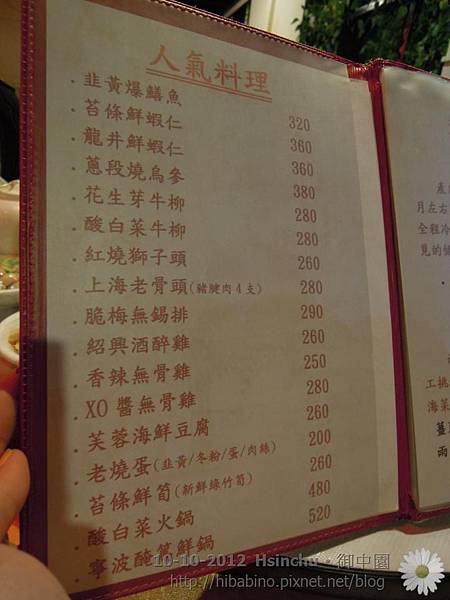 人氣料理
. 韭黃爆鱔魚 320
. 苔條鮮蝦仁 360
. 龍井鮮蝦仁 360
. 蔥段燒烏參 380
. 花生芽牛柳 280
. 酸白菜牛柳 280
. 紅燒獅子頭 260
. 上海老骨頭(豬腱肉4支) 280
. 脆梅無錫排 290
. 紹興酒醉雞 260
. 香辣無骨雞 250
. XO醬無骨雞 280
. 芙蓉海鮮豆腐 260
. 老燒蛋(韭黃/冬粉/蛋/肉絲) 200
. 苔條鮮筍(新鮮綠竹筍) 260
. 酸白菜火鍋 480
. 寧波醃篤鮮鍋 520
產
月左右
全程冷
覓的
工挑
海菜
薑
雨
10-10-2012 Hsinchu·御中園
http://hibabino.pixnet.net/blog